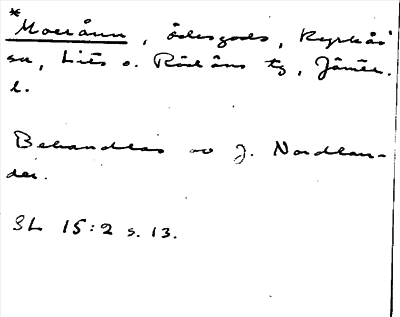 *
Moeränn, ödesgods, Kyrkås
sn, Lits o. Rödöns tg, Jämtl.
l.
Behandlas av J. Nordlan-
der.
SL 15:2 s. 13.